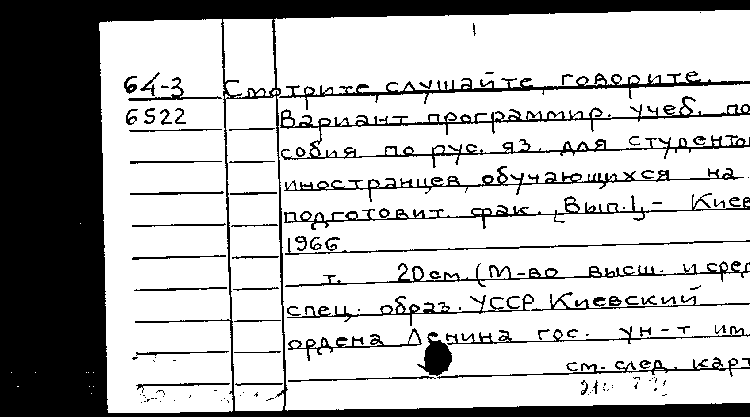 64-3 Смотрите, слушайте, говорите.
6522 Вариант программир. учеб. по
собия по рус. яз. для студентов
иностранцев, обучающихся на
подготовит. фак. [Вып.1,- Киев
1966.
т. 20см (М-во высш. и сред
спец. образ. УССР Киевский
ордена Ленина гос. ун-т им
см. след. карт